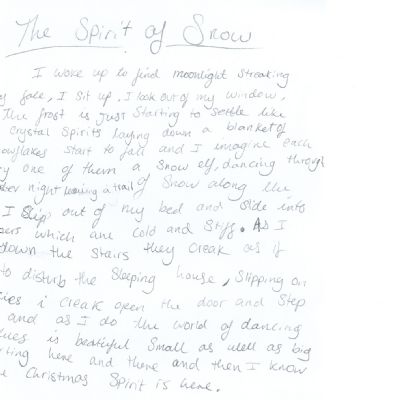 The Spirit of Snow
I woke up to find moonlight streaking
face, I sit up, I look out of my window,
The frost is just starting to settle like
crystal spirits laying down a blanket of
start to fall and I imagine each
one of them a snow elf, dancing through
night leaving a trail of snow along the
I slip out of my bed and slide into
which are cold and stiff. As I
down the stairs they creak as if
to disturb the sleeping house, slipping on
i creak open the door and step
and as I do the world of dancing
is beatiful small as well as big
here and there and then I know
Christmas Spirit is here.